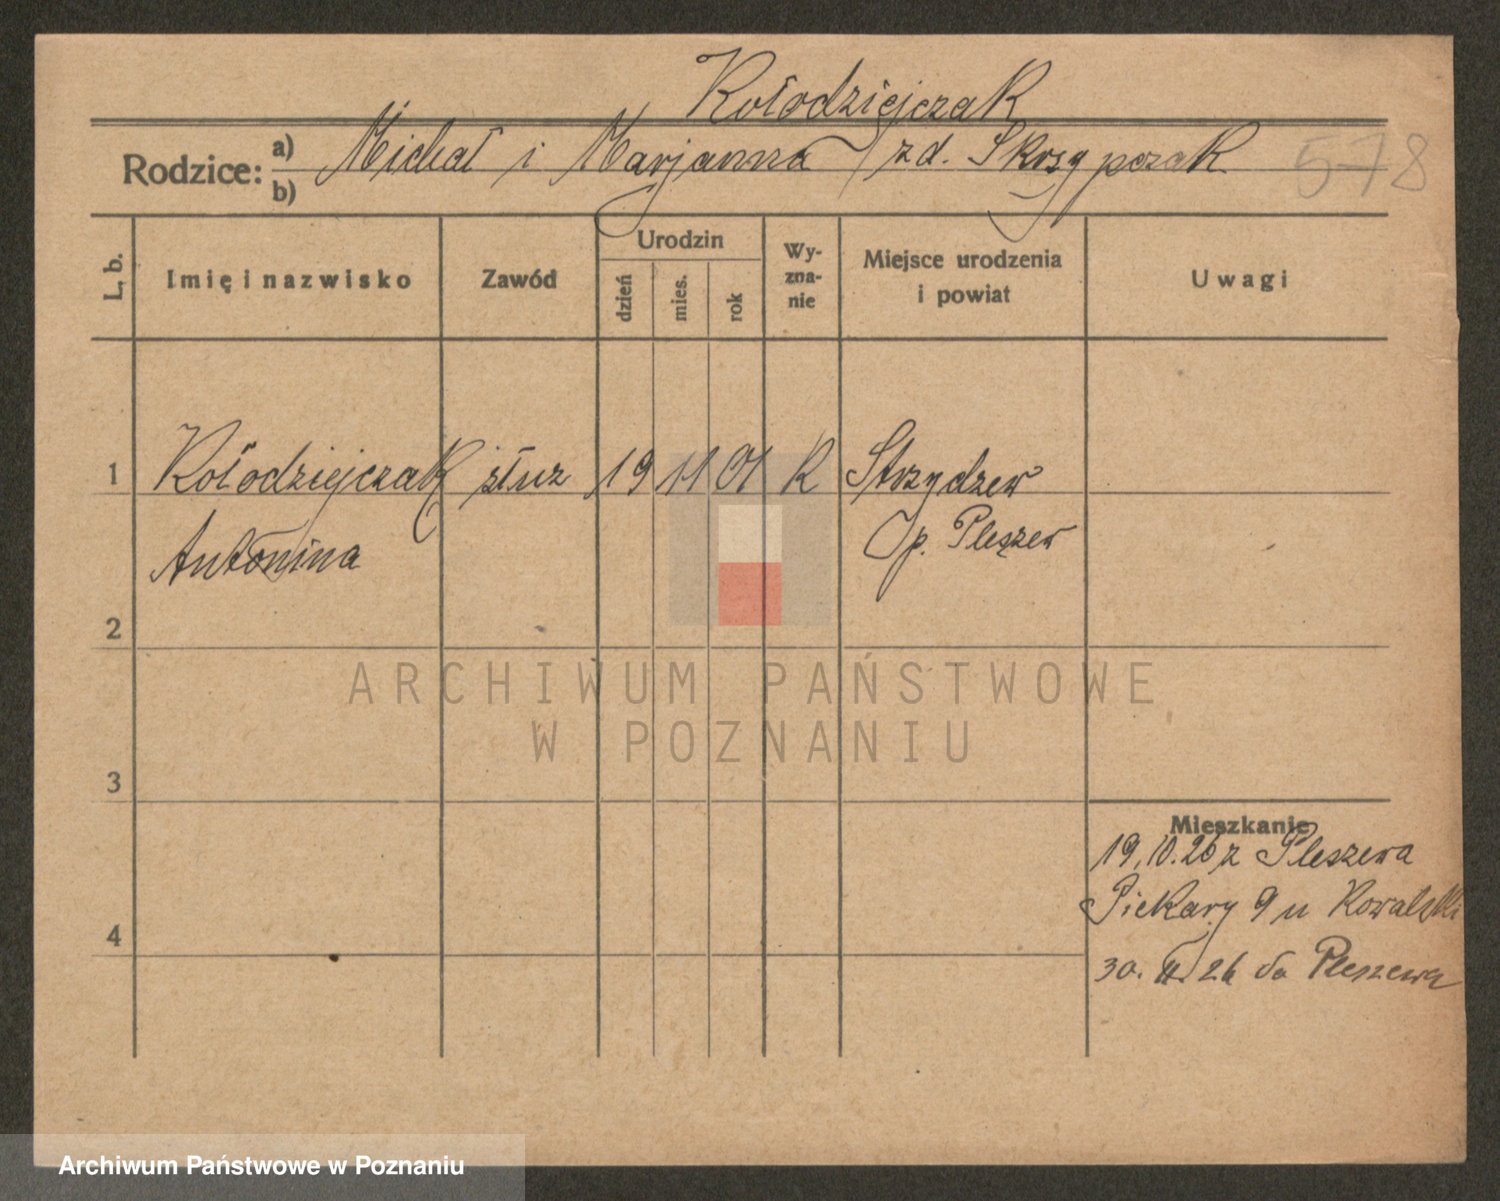 Kołodziejczak
Rodzice: a) b) Michał i Marjanna zd. Skrzypczak 578
L. b.
Imię i nazwisko
Zawód
Urodzin
dzień
mies.
rok
Wy-
zna-
nie
Miejsce urodzenia
i powiat
Uwagi
1 Kołodziejczak służ 19 11 01 K Strzydzew
Antonina p. Pleszew
2
ARCHIWUM PAŃSTWOWE
W POZNANIU
3
Mieszkanie
19.10.26 z Pleszewa
Piekary 9 u Kowalski
4
30. 11. 26 do Pleszewa
Archiwum Państwowe w Poznaniu